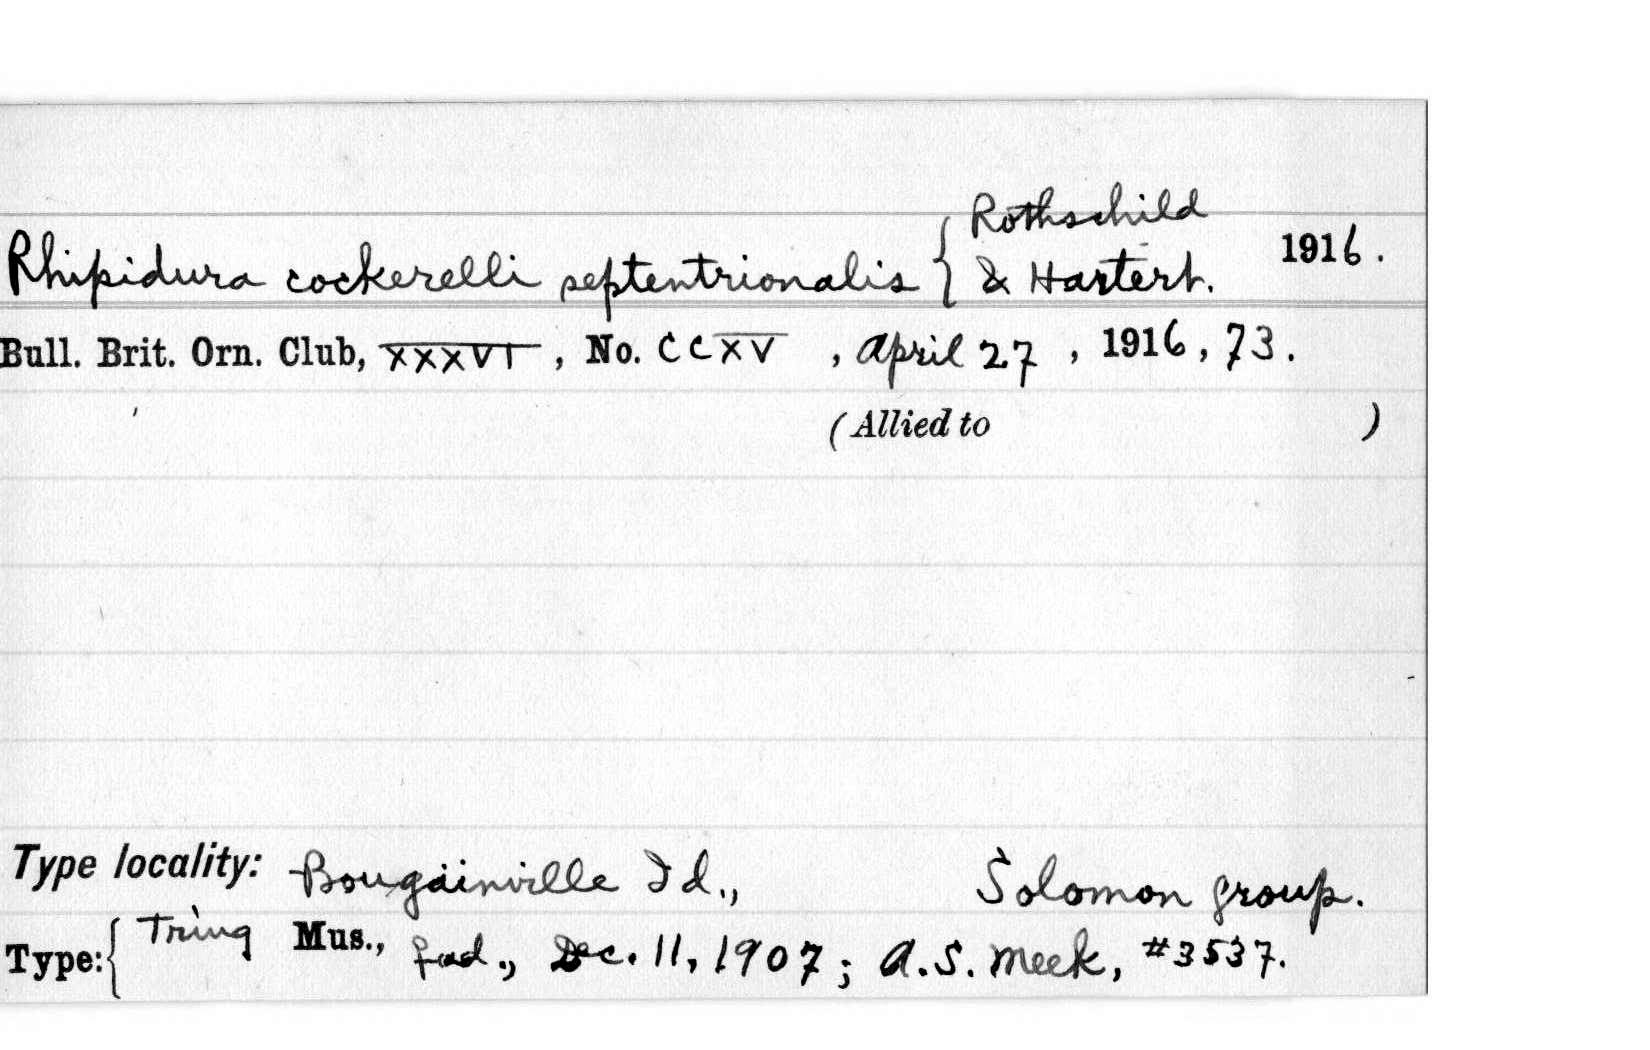 Rhipidura cockerelli septentrionalis { Rothschild & Hartert. 1916.
Bull. Brit. Orn. Club, XXXVI, No. CCXV, April 27, 1916, 73.
(Allied to )
Type locality: Bougainville Id., Solomon group.
Type: { Tring Mus., fad., Dec. 11, 1907; A.S. Meek, #3537.